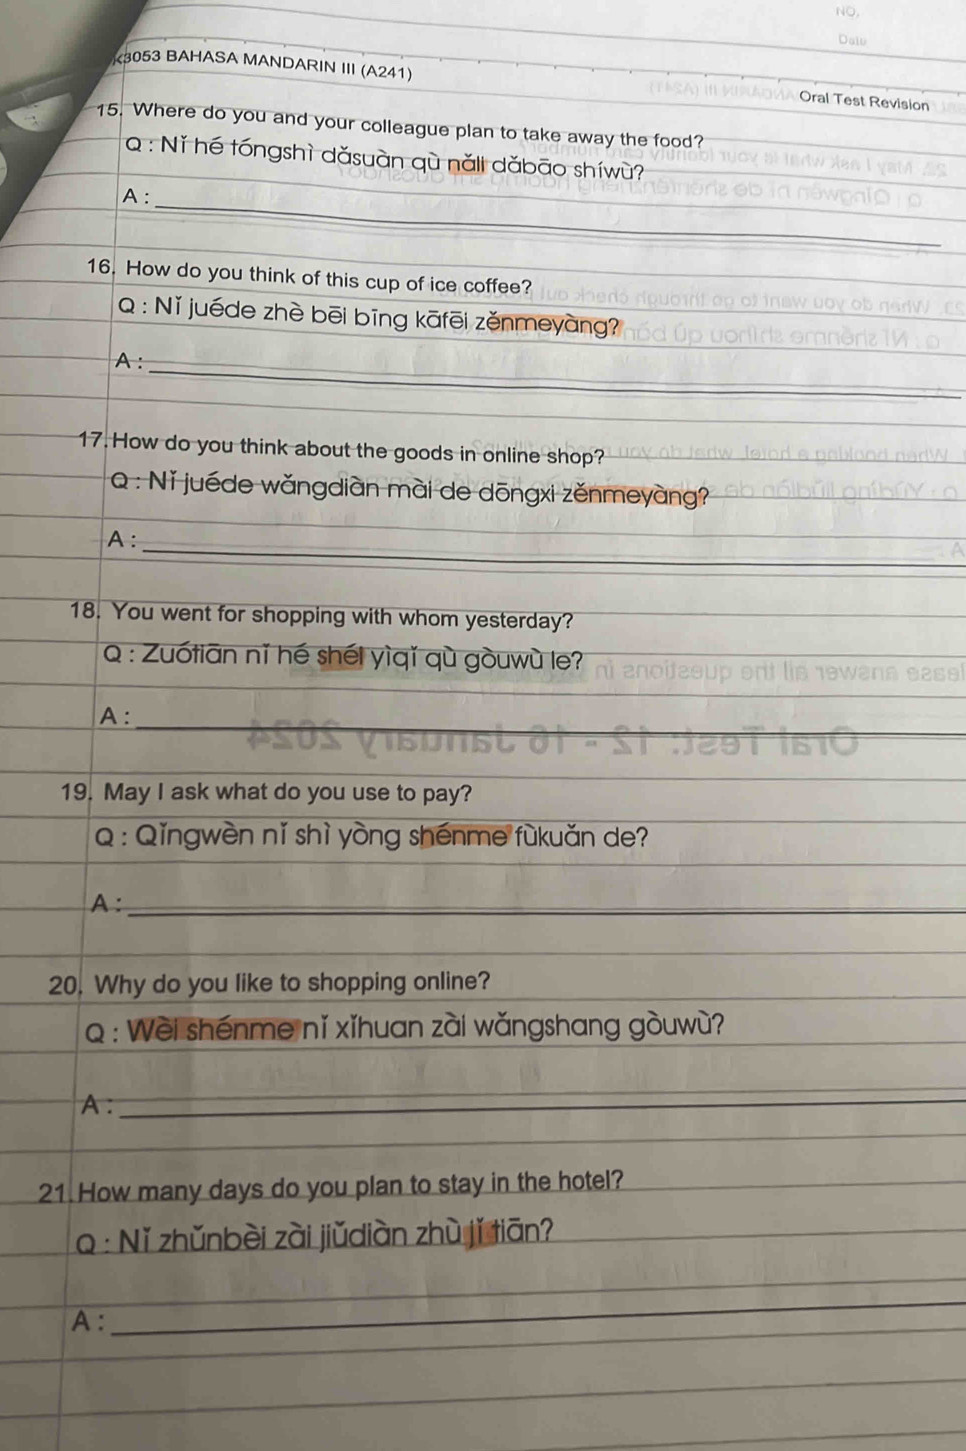 NO.
Date
K3053 BAHASA MANDARIN III (A241)
Oral Test Revision
15. Where do you and your colleague plan to take away the food?
Q : Nǐ hé tóngshì dǎsuàn qù nǎli dǎbāo shíwù?
A :
16. How do you think of this cup of ice coffee?
Q : Nǐ juéde zhè bēi bīng kāfēi zěnmeyàng?
A :
17. How do you think about the goods in online shop?
Q : Nǐ juéde wǎngdiàn mài de dōngxi zěnmeyàng?
A :
18. You went for shopping with whom yesterday?
Q : Zuótiān nǐ hé shéi yìqǐ qù gòuwù le?
A :
19. May I ask what do you use to pay?
Q : Qǐngwèn nǐ shì yòng shénme fùkuǎn de?
A :
20. Why do you like to shopping online?
Q : Wèi shénme nǐ xǐhuan zài wǎngshang gòuwù?
A :
21. How many days do you plan to stay in the hotel?
Q : Nǐ zhǔnbèi zài jiǔdiàn zhù jǐ tiān?
A :